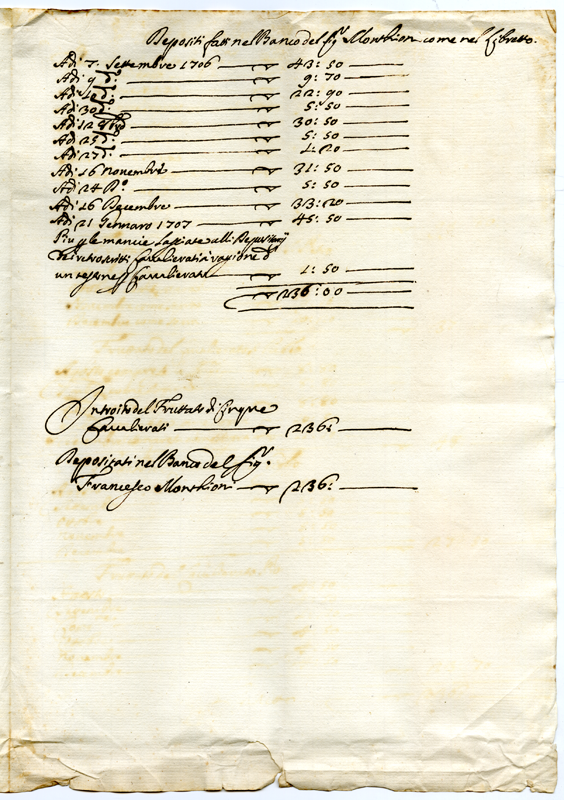 Depositi fatti nel Banco del Sig.r Monthion come nel Libretto.
Adi 7. Settembre 1706 43: 50
Adi 9 d.o: 9: 70
Adi d.o: 22: 90
Adi 30 d.o: 5: 50
Adi 12 8bre 30: 50
Adi 25 d.o: 5: 50
Adi 27 d.o: 1: 20
Adi 16 Novembre 31: 50
Adi 24 D.o 5: 50
Adi 16 Decembre 33: 20
Adi 21 Gennaro 1707 45: 50
Più p le mancie lassiate alli Depositarij
Cavalierati à ragione d'
un Cavalierato 1: 50
236: 00
Introito del Fruttato di Cinque
Cavalierati 236:
Depositati nel Banco del Sig.r
Francesco Monthion 236: